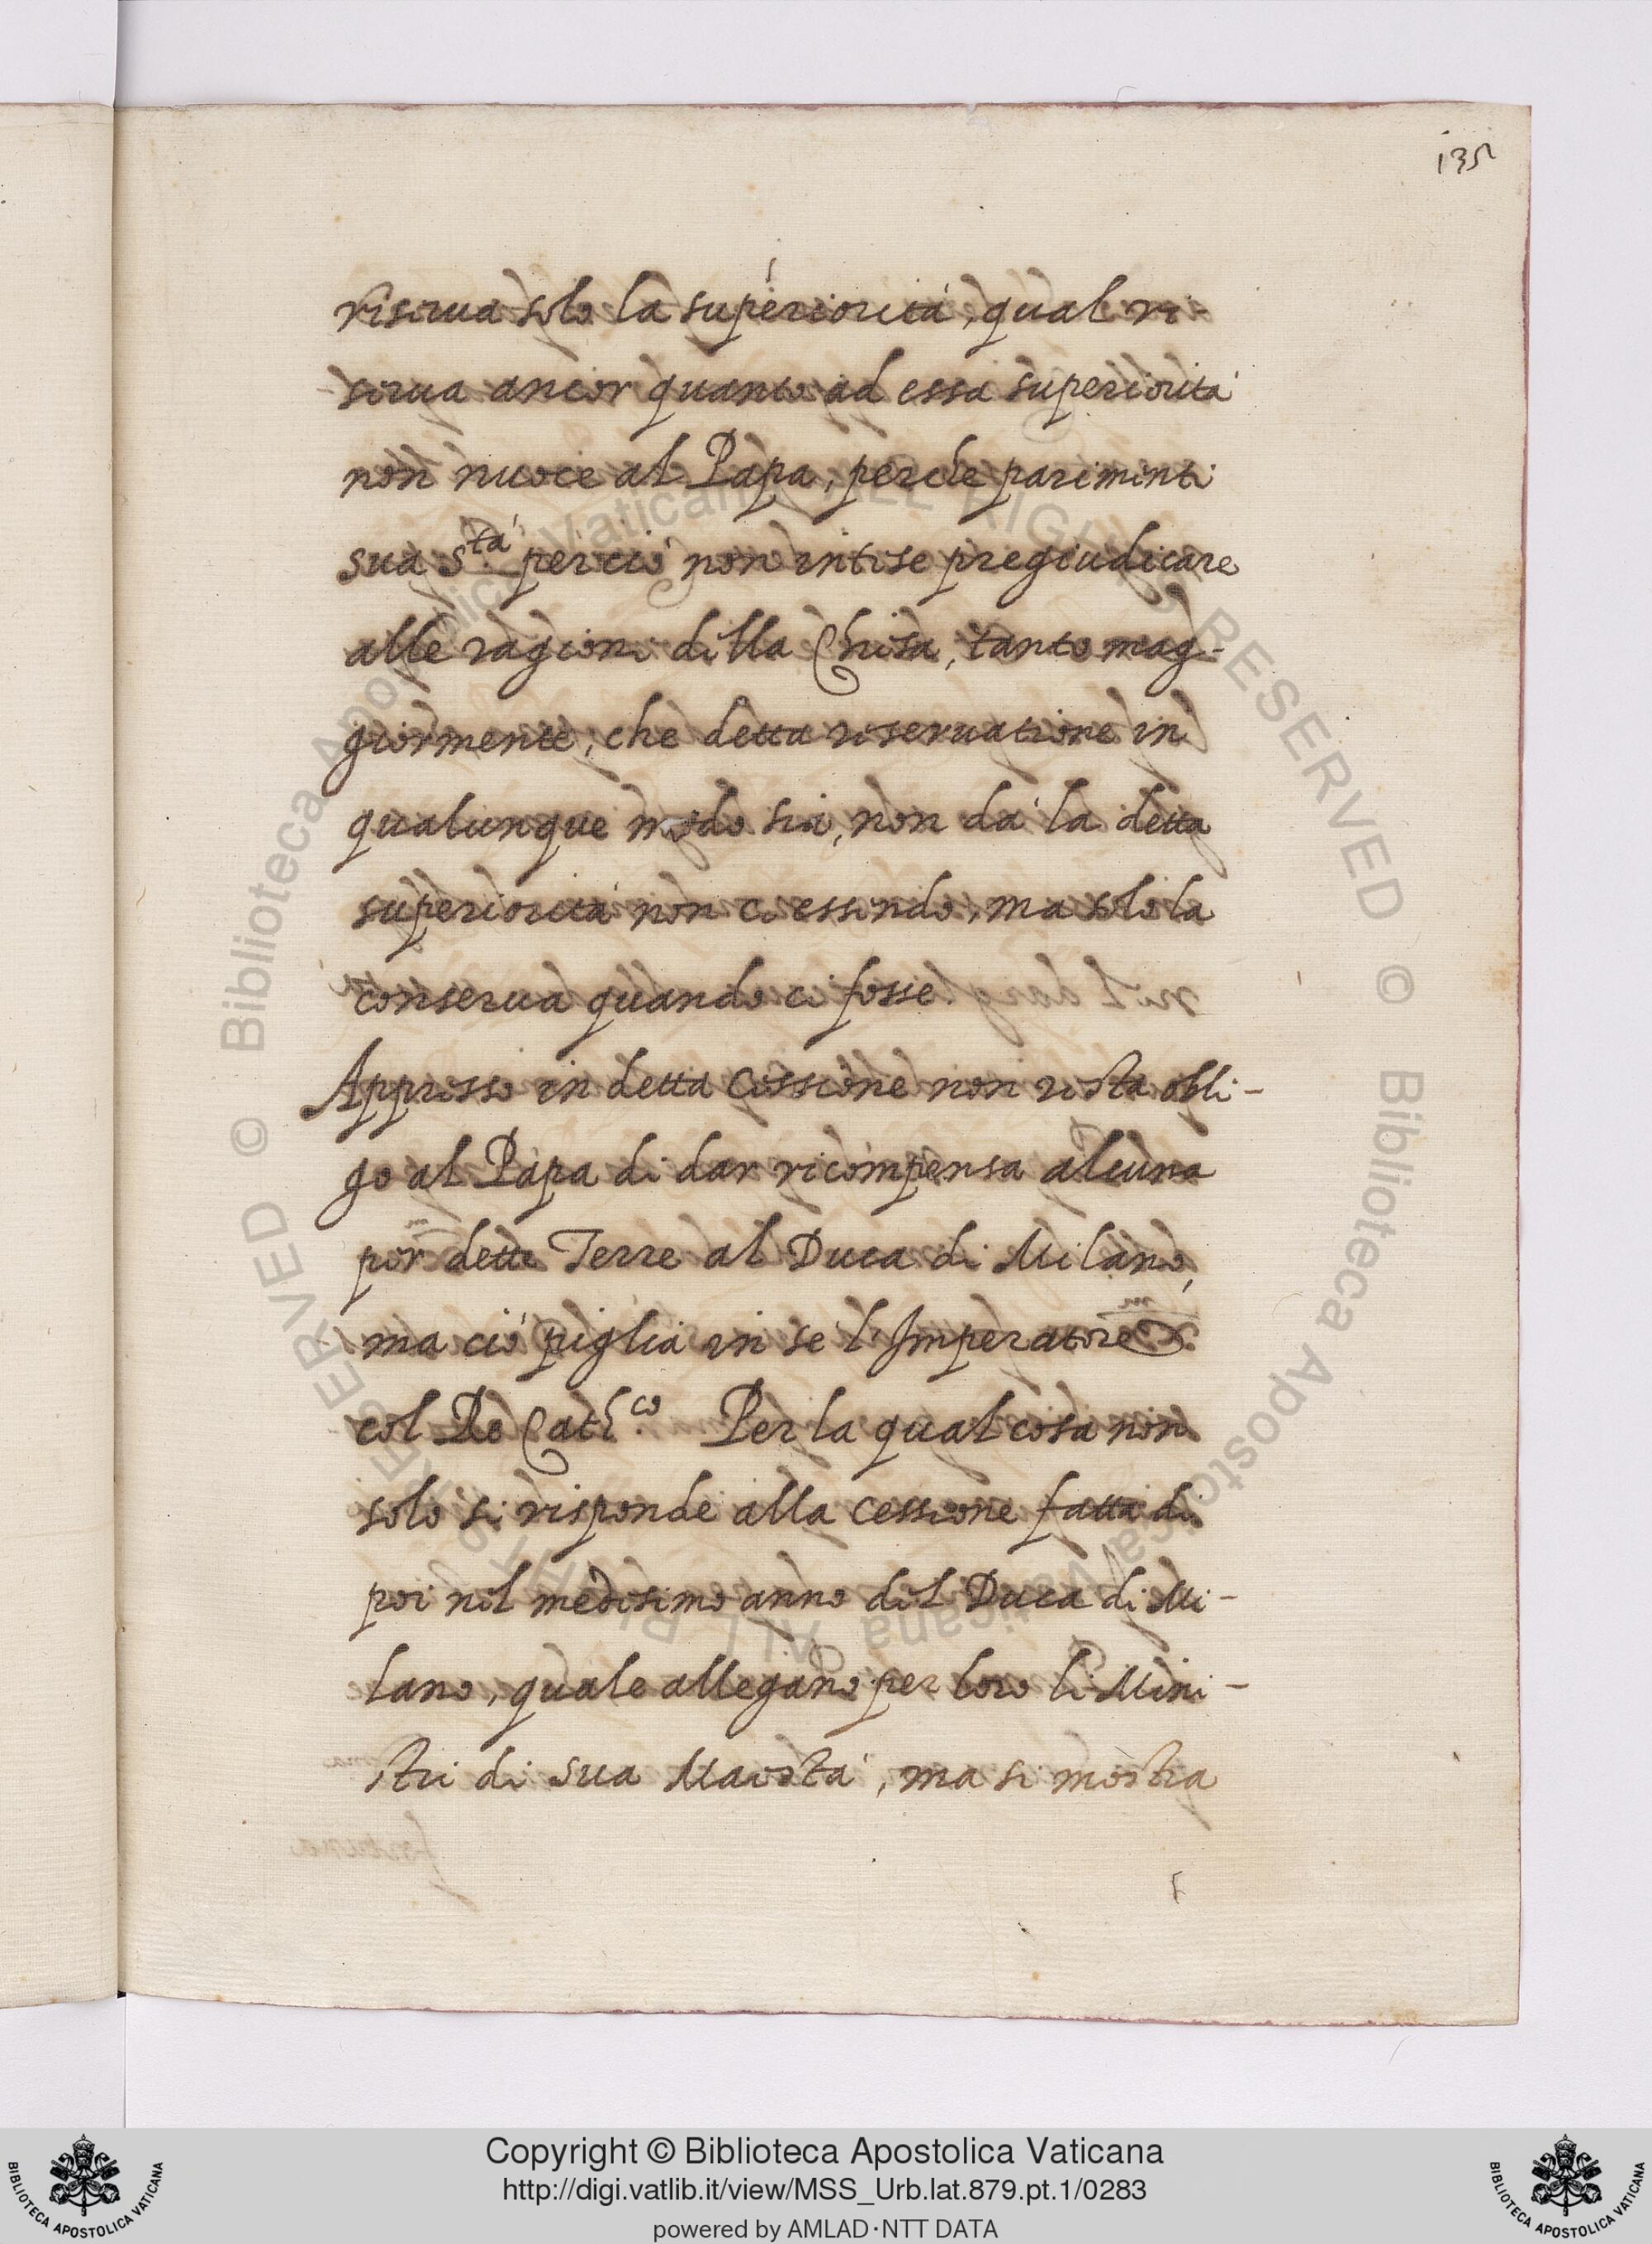 135
riserua solo la superiorità, qual ri-
serua ancor quanto ad essa superiorità
non nuoce al Papa, perche parimenti
sua S.tà perciò non intese pregiudicare
alle ragioni della Chiesa, tanto mag-
giormente, che detta reseruatione in
qualunque modo sia, non dà la detta
superiorità non ci essendo, ma solo la
conserua quando ci fosse.
Appresso in detta Cessione non resta obli-
go al Papa di dar ricompensa alcuna
per dette Terre al Duca di Milano,
ma ciò piglia in se l'Imperatore
col Rè Cath.co Per la qual cosa non
solo si risponde alla cessione fatta di
poi nel medesimo anno del Duca di Mi-
lano, quale allegano per loro li Mini-
stri di sua Maestà, ma si mostra
© Biblioteca Apostolica Vaticana ALL RIGHTS RESERVED © Biblioteca Apostolica Vaticana ALL RIGHTS RESERVED
Copyright © Biblioteca Apostolica Vaticana
http://digi.vatlib.it/view/MSS_Urb.lat.879.pt.1/0283
powered by AMLAD·NTT DATA
BIBLIOTECA APOSTOLICA VATICANA
BIBLIOTECA APOSTOLICA VATICANA